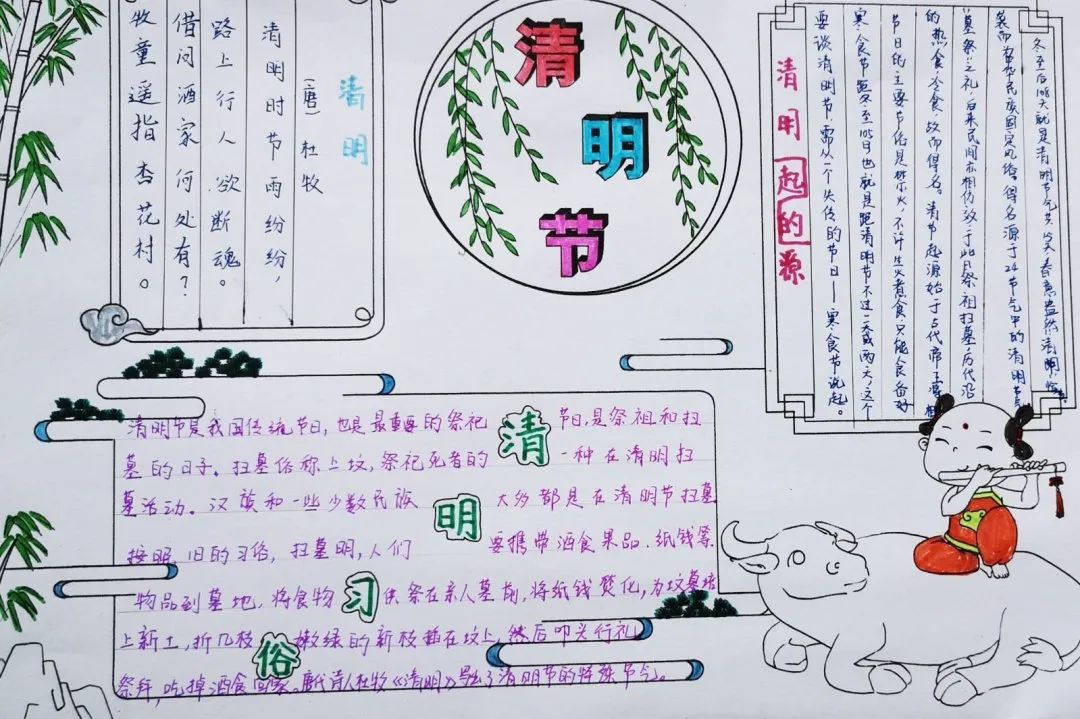 清明
(唐)杜牧
清明时节雨纷纷,
路上行人欲断魂。
借问酒家何处有?
牧童遥指杏花村。
清
明
节
清明起的源
要谈清明节,需从一个失传的节日——寒食节说起。
寒食节距冬至105日也就是距清明节不过一天或两天,这个
节日的主要节俗是禁火,不许生火煮食,只能食备好
的热食冷食,故而得名。清节起源始于古代帝王将相
墓祭"之礼,后来民间亦相仿效,于此日祭祖扫墓,历代沿
袭而为中华民族固定风俗。得名源于24节气中的清明节气
冬至后108天就是清明节气共15天,春意盎然清明
清明习俗
清明节是我国传统节日,也是最重要的祭祀节日,是祭祖和扫
墓的日子。扫墓俗称上坟,祭祀死者的一种在清明扫
墓活动。汉族和一些少数民族大多都是在清明节扫墓
按照旧的习俗,扫墓明,人们要携带酒食果品、纸钱等
物品到墓地,将食物供祭在亲人墓前,将纸钱焚化,为坟墓培
上新土,折几枝嫩绿的新枝插在坟上,然后叩头行礼
祭拜,吃掉酒食回家。唐代诗人杜牧《清明》写出了清明节的特殊节气。